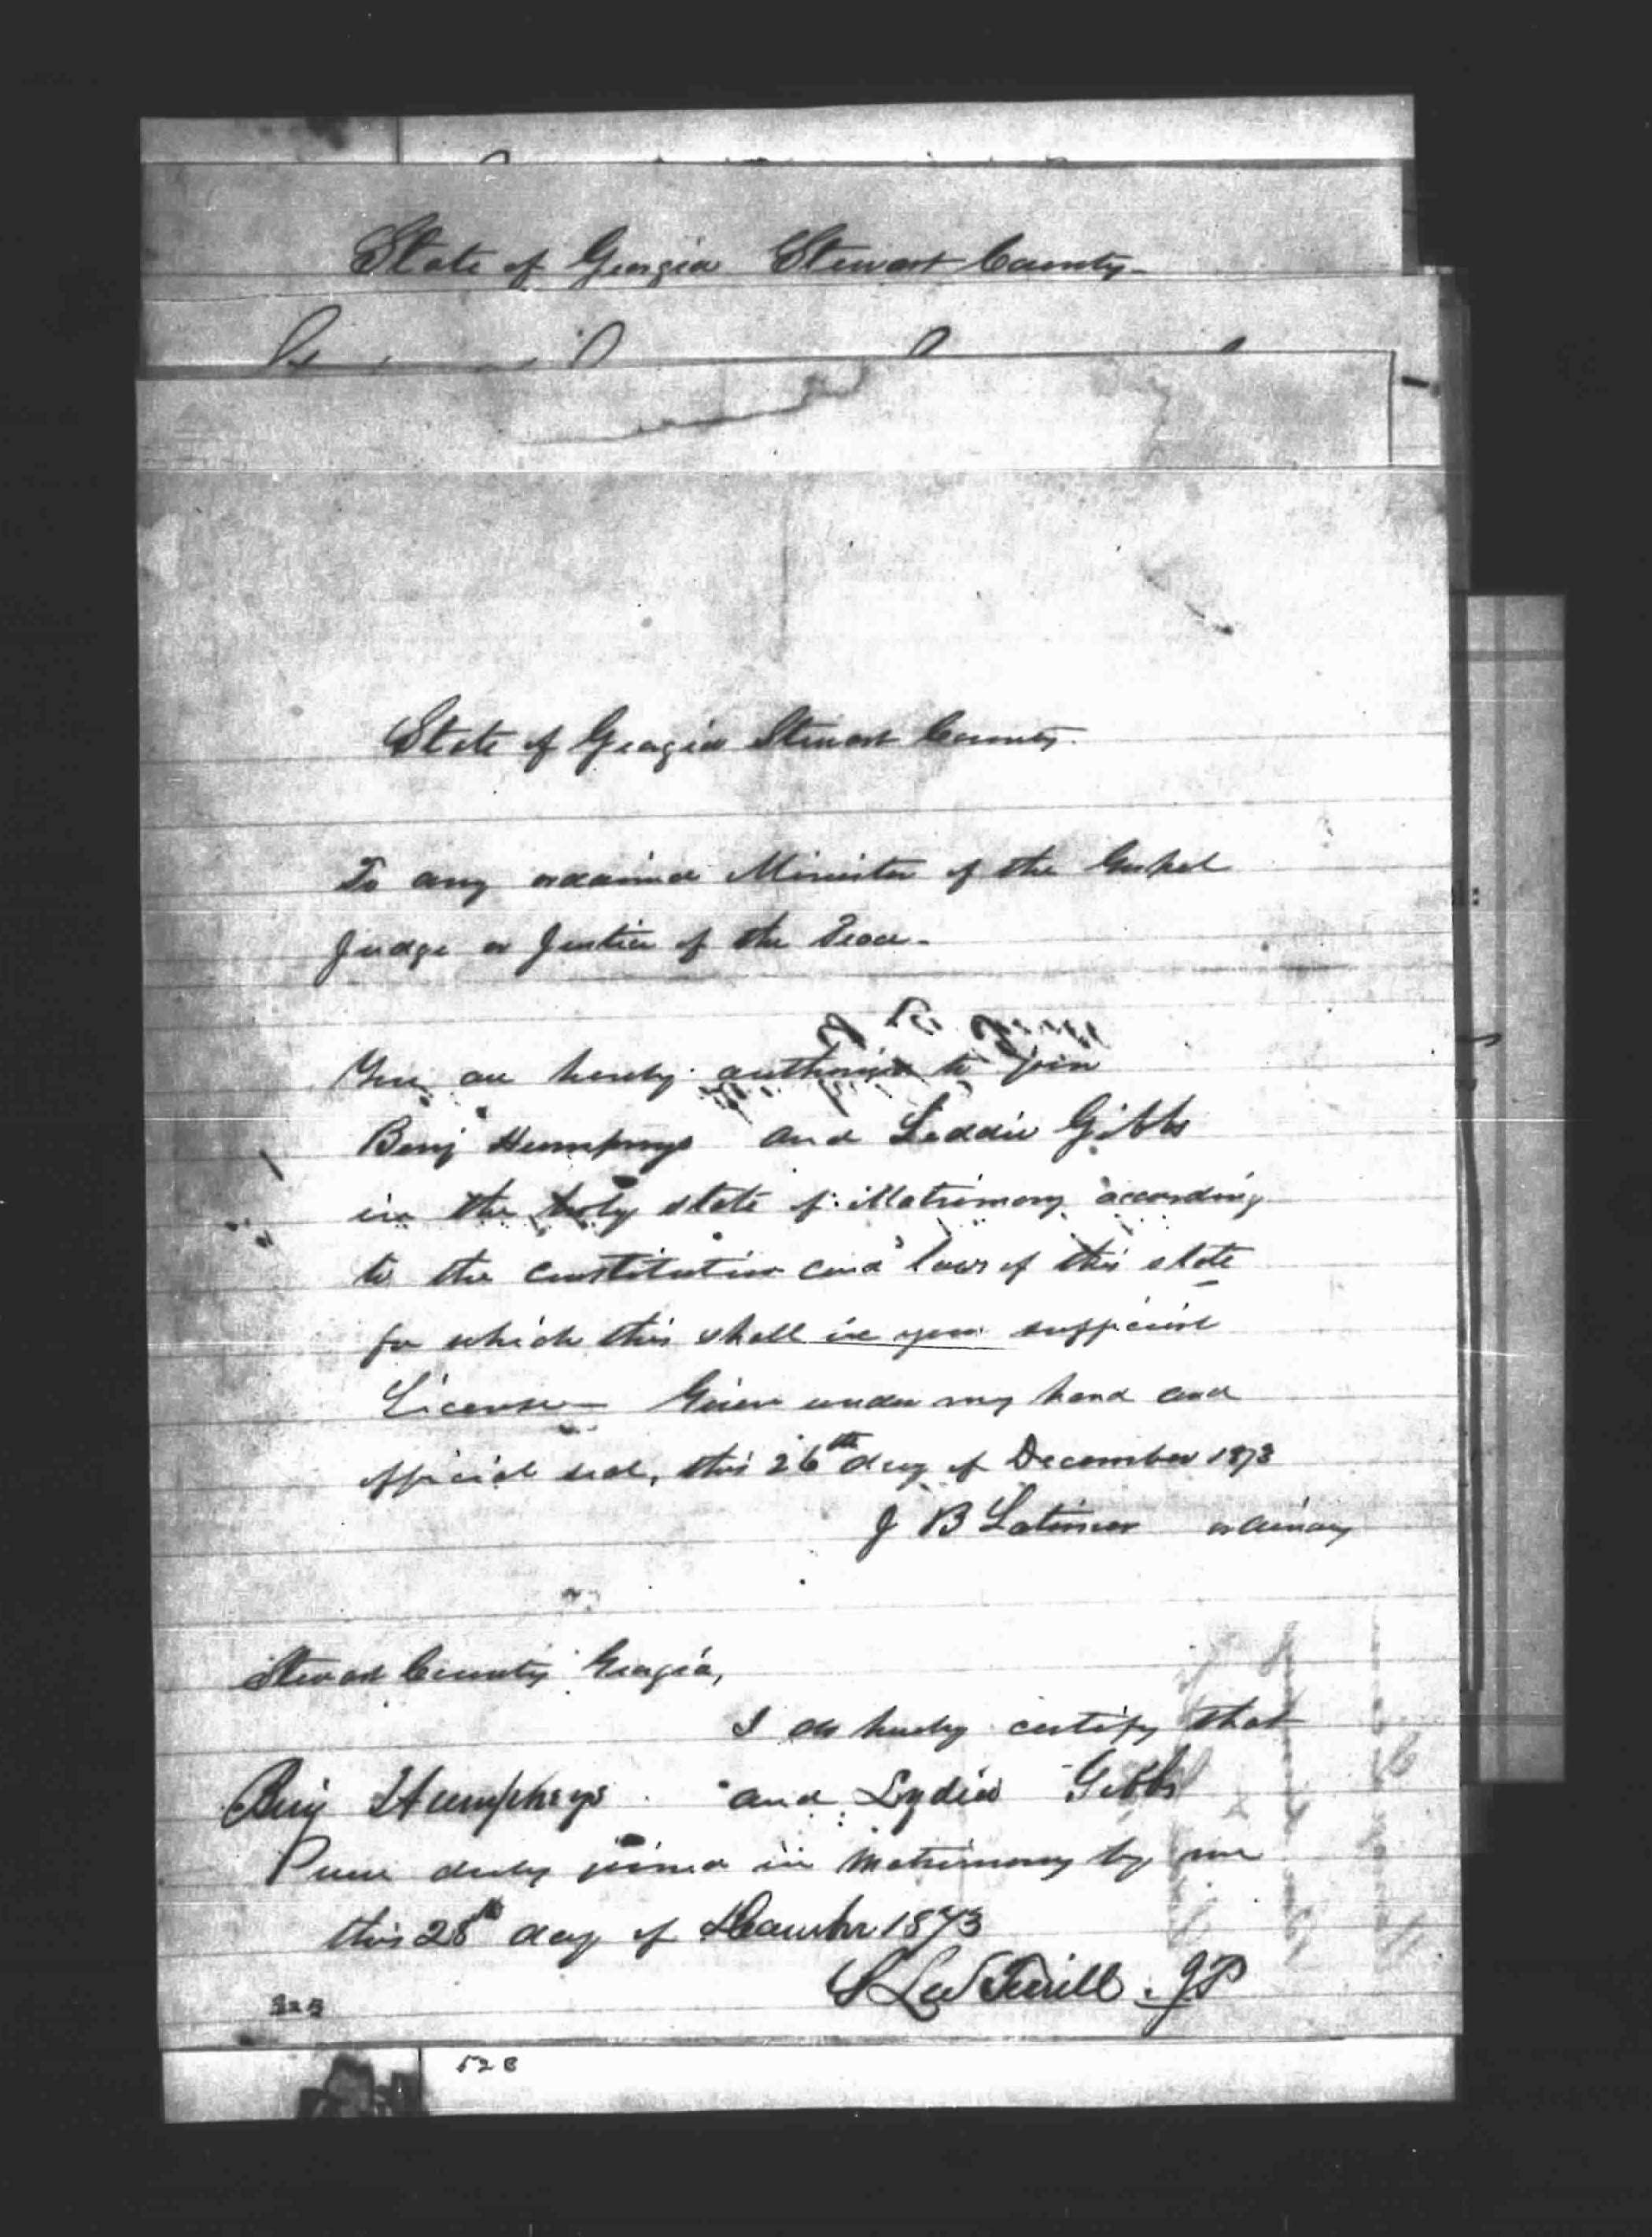 State of Georgia Stewart County
State of Georgia Stewart County
To any ordained Minister of the Gospel
Judge or Justice of the Peace
You are hereby authorized to join
Benj Humphrys and Liddie Gibbs
in the holy state of Matrimony according
to the constitution and laws of this state
for which this shall be your sufficient
License Given under my hand and
official seal, this 26th day of December 1873
J B Latimer ordinary
Stewart County Georgia,
I do hereby certify that
Benj Humphreys and Lydia Gibbs
were duly joined in Matrimony by me
this 28th day of December 1873
JP
528